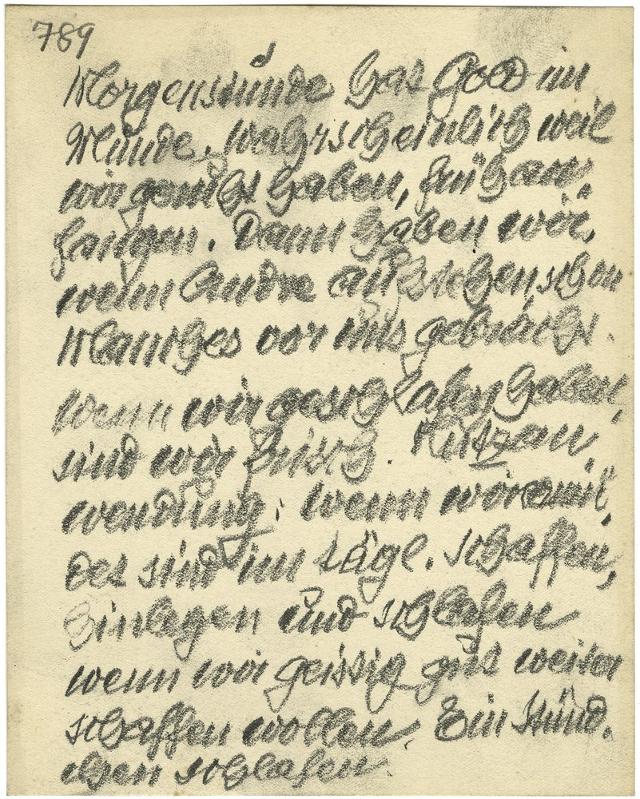 789
Morgenstunde hat Gold im
Munde. Wahrscheinlich weil
wir genicht haben, früh an,
fangen. Dann haben wir,
wenn Andre aufstehen schon
Manches vor uns gebracht.
Wenn wir geschlafen haben,
sind wir frisch. Nutzan,
wendung: wenn wir ermü,
det sind im tägl. Schaffen,
Hinlegen und schlafen
wenn wir geistig gut weiter
schaffen wollen. Ein Stünd,
chen schlafen.